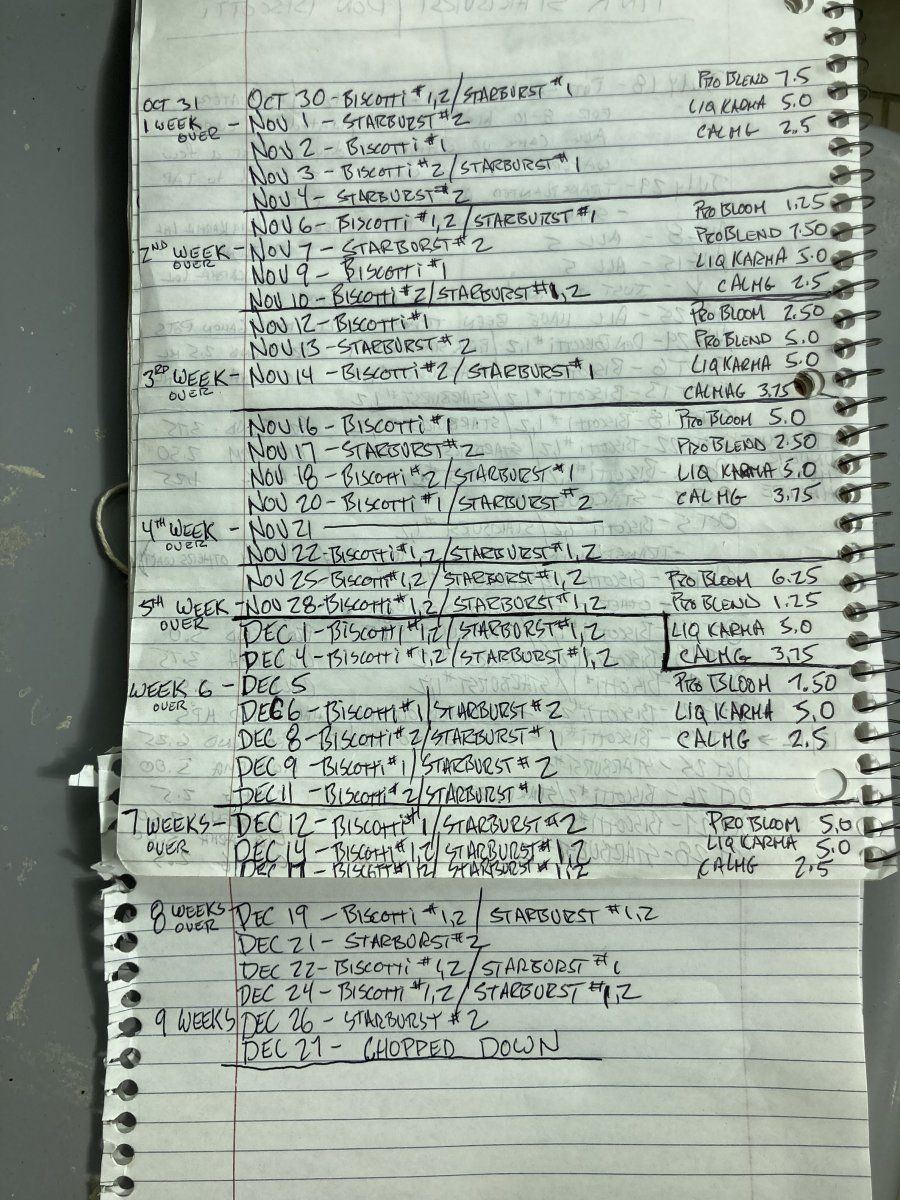 OCT 31 OCT 30 - BISCOTTI #1,2/STARBURST #1 PRO BLEND 7.5
1 WEEK OVER - NOV 1 - STARBURST #2 LIQ KARMA 5.0
NOV 2 - BISCOTTI #1 CALMG 2.5
NOV 3 - BISCOTTI #2/STARBURST #1
NOV 4 - STARBURST #2
NOV 6 - BISCOTTI #1,2/STARBURST #1 PRO BLOOM 1.25
2ND WEEK OVER - NOV 7 - STARBURST #2 PRO BLEND 7.50
NOV 9 - BISCOTTI #1 LIQ KARMA 5.0
NOV 10 - BISCOTTI #2/STARBURST #1,2 CALMG 2.5
NOV 12 - BISCOTTI #1 PRO BLOOM 2.50
NOV 13 - STARBURST #2 PRO BLEND 5.0
3RD WEEK OVER - NOV 14 - BISCOTTI #2/STARBURST #1 LIQ KARMA 5.0
CALMAG 3.75
NOV 16 - BISCOTTI #1 PRO BLOOM 5.0
NOV 17 - STARBURST #2 PRO BLEND 2.50
NOV 18 - BISCOTTI #2/STARBURST #1 LIQ KARMA 5.0
NOV 20 - BISCOTTI #1/STARBURST #2 CALMG 3.75
4TH WEEK OVER - NOV 21
NOV 22 - BISCOTTI #1,2/STARBURST #1,2
NOV 25 - BISCOTTI #1,2/STARBURST #1,2 PRO BLOOM 6.25
5TH WEEK OVER - NOV 28 - BISCOTTI #1,2/STARBURST #1,2 PRO BLEND 1.25
DEC 1 - BISCOTTI #1,2/STARBURST #1,2 LIQ KARMA 5.0
DEC 4 - BISCOTTI #1,2/STARBURST #1,2 CALMG 3.75
WEEK 6 OVER - DEC 5 PRO BLOOM 7.50
DEC 6 - BISCOTTI #1/STARBURST #2 LIQ KARMA 5.0
DEC 8 - BISCOTTI #2/STARBURST #1 CALMG 2.5
DEC 9 - BISCOTTI #1/STARBURST #2
DEC 11 - BISCOTTI #2/STARBURST #1
7 WEEKS OVER - DEC 12 - BISCOTTI #1/STARBURST #2 PRO BLOOM 5.0
DEC 14 - BISCOTTI #1,2/STARBURST #1,2 LIQ KARMA 5.0
DEC 17 - BISCOTTI #1,2/STARBURST #1,2 CALMG 2.5
8 WEEKS OVER DEC 19 - BISCOTTI #1,2/STARBURST #1,2
DEC 21 - STARBURST #2
DEC 22 - BISCOTTI #1,2/STARBURST #1
DEC 24 - BISCOTTI #1,2/STARBURST #1,2
9 WEEKS DEC 26 - STARBURST #2
DEC 27 - CHOPPED DOWN